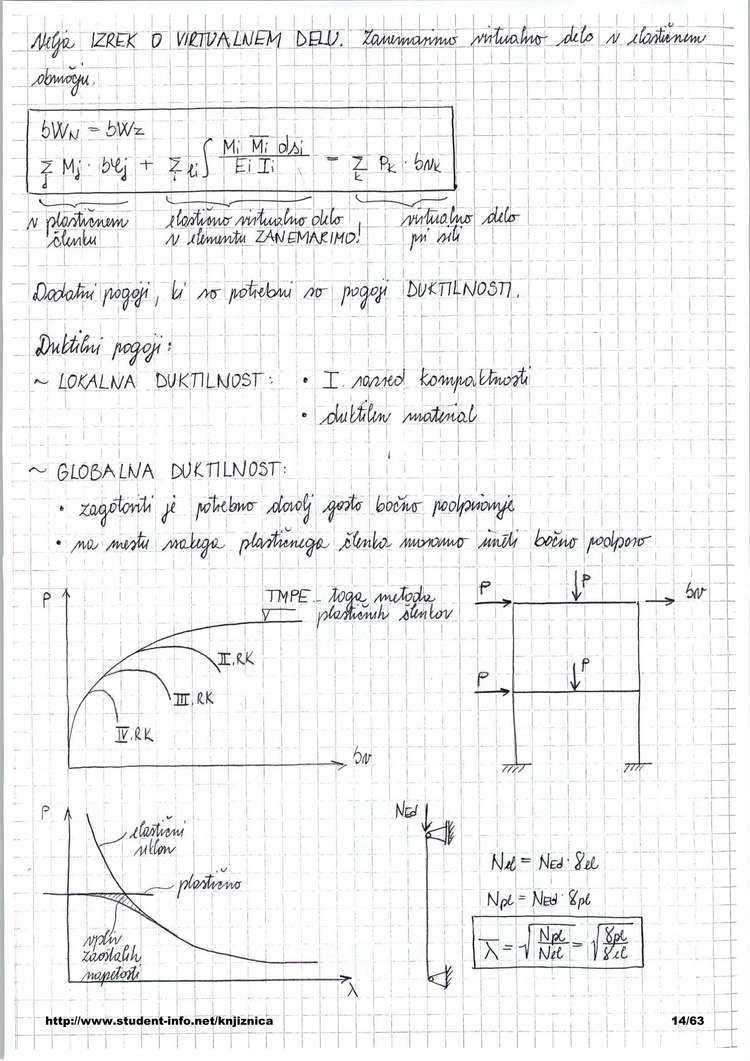 Velja IZREK O VIRTUALNEM DELU. Zanemarimo virtualno delo v elastičnem
območju.
δWN = δWZ
∑j Mj · δφj + ∑i ℓi∫ Mi M̄i dsi / Ei Ii = ∑k Pk · δvk
v plastičnem členku
elastično virtualno delo v elementu ZANEMARIMO!
virtualno delo pri sili
Dodatni pogoji, ki so potrebni so pogoji DUKTILNOSTI.
Duktilni pogoji:
~ LOKALNA DUKTILNOST: • I. razred kompaktnosti
• duktilen material
~ GLOBALNA DUKTILNOST:
• zagotoviti je potrebno dovolj gosto bočno podpiranje
• na mestu vsakega plastičnega členka moramo imeti bočno podporo
P
TMPE - toga metoda
plastičnih členkov
II. RK
III. RK
IV. RK
δv
P
P
δv
P
P
P
elastični
uklon
plastično
vpliv
zaostalih
napetosti
λ
NEd
Nel = NEd · γel
Npl = NEd · γpl
λ̄ = √(Npl / Nel) = √(γpl / γel)
http://www.student-info.net/knjiznica
14/63